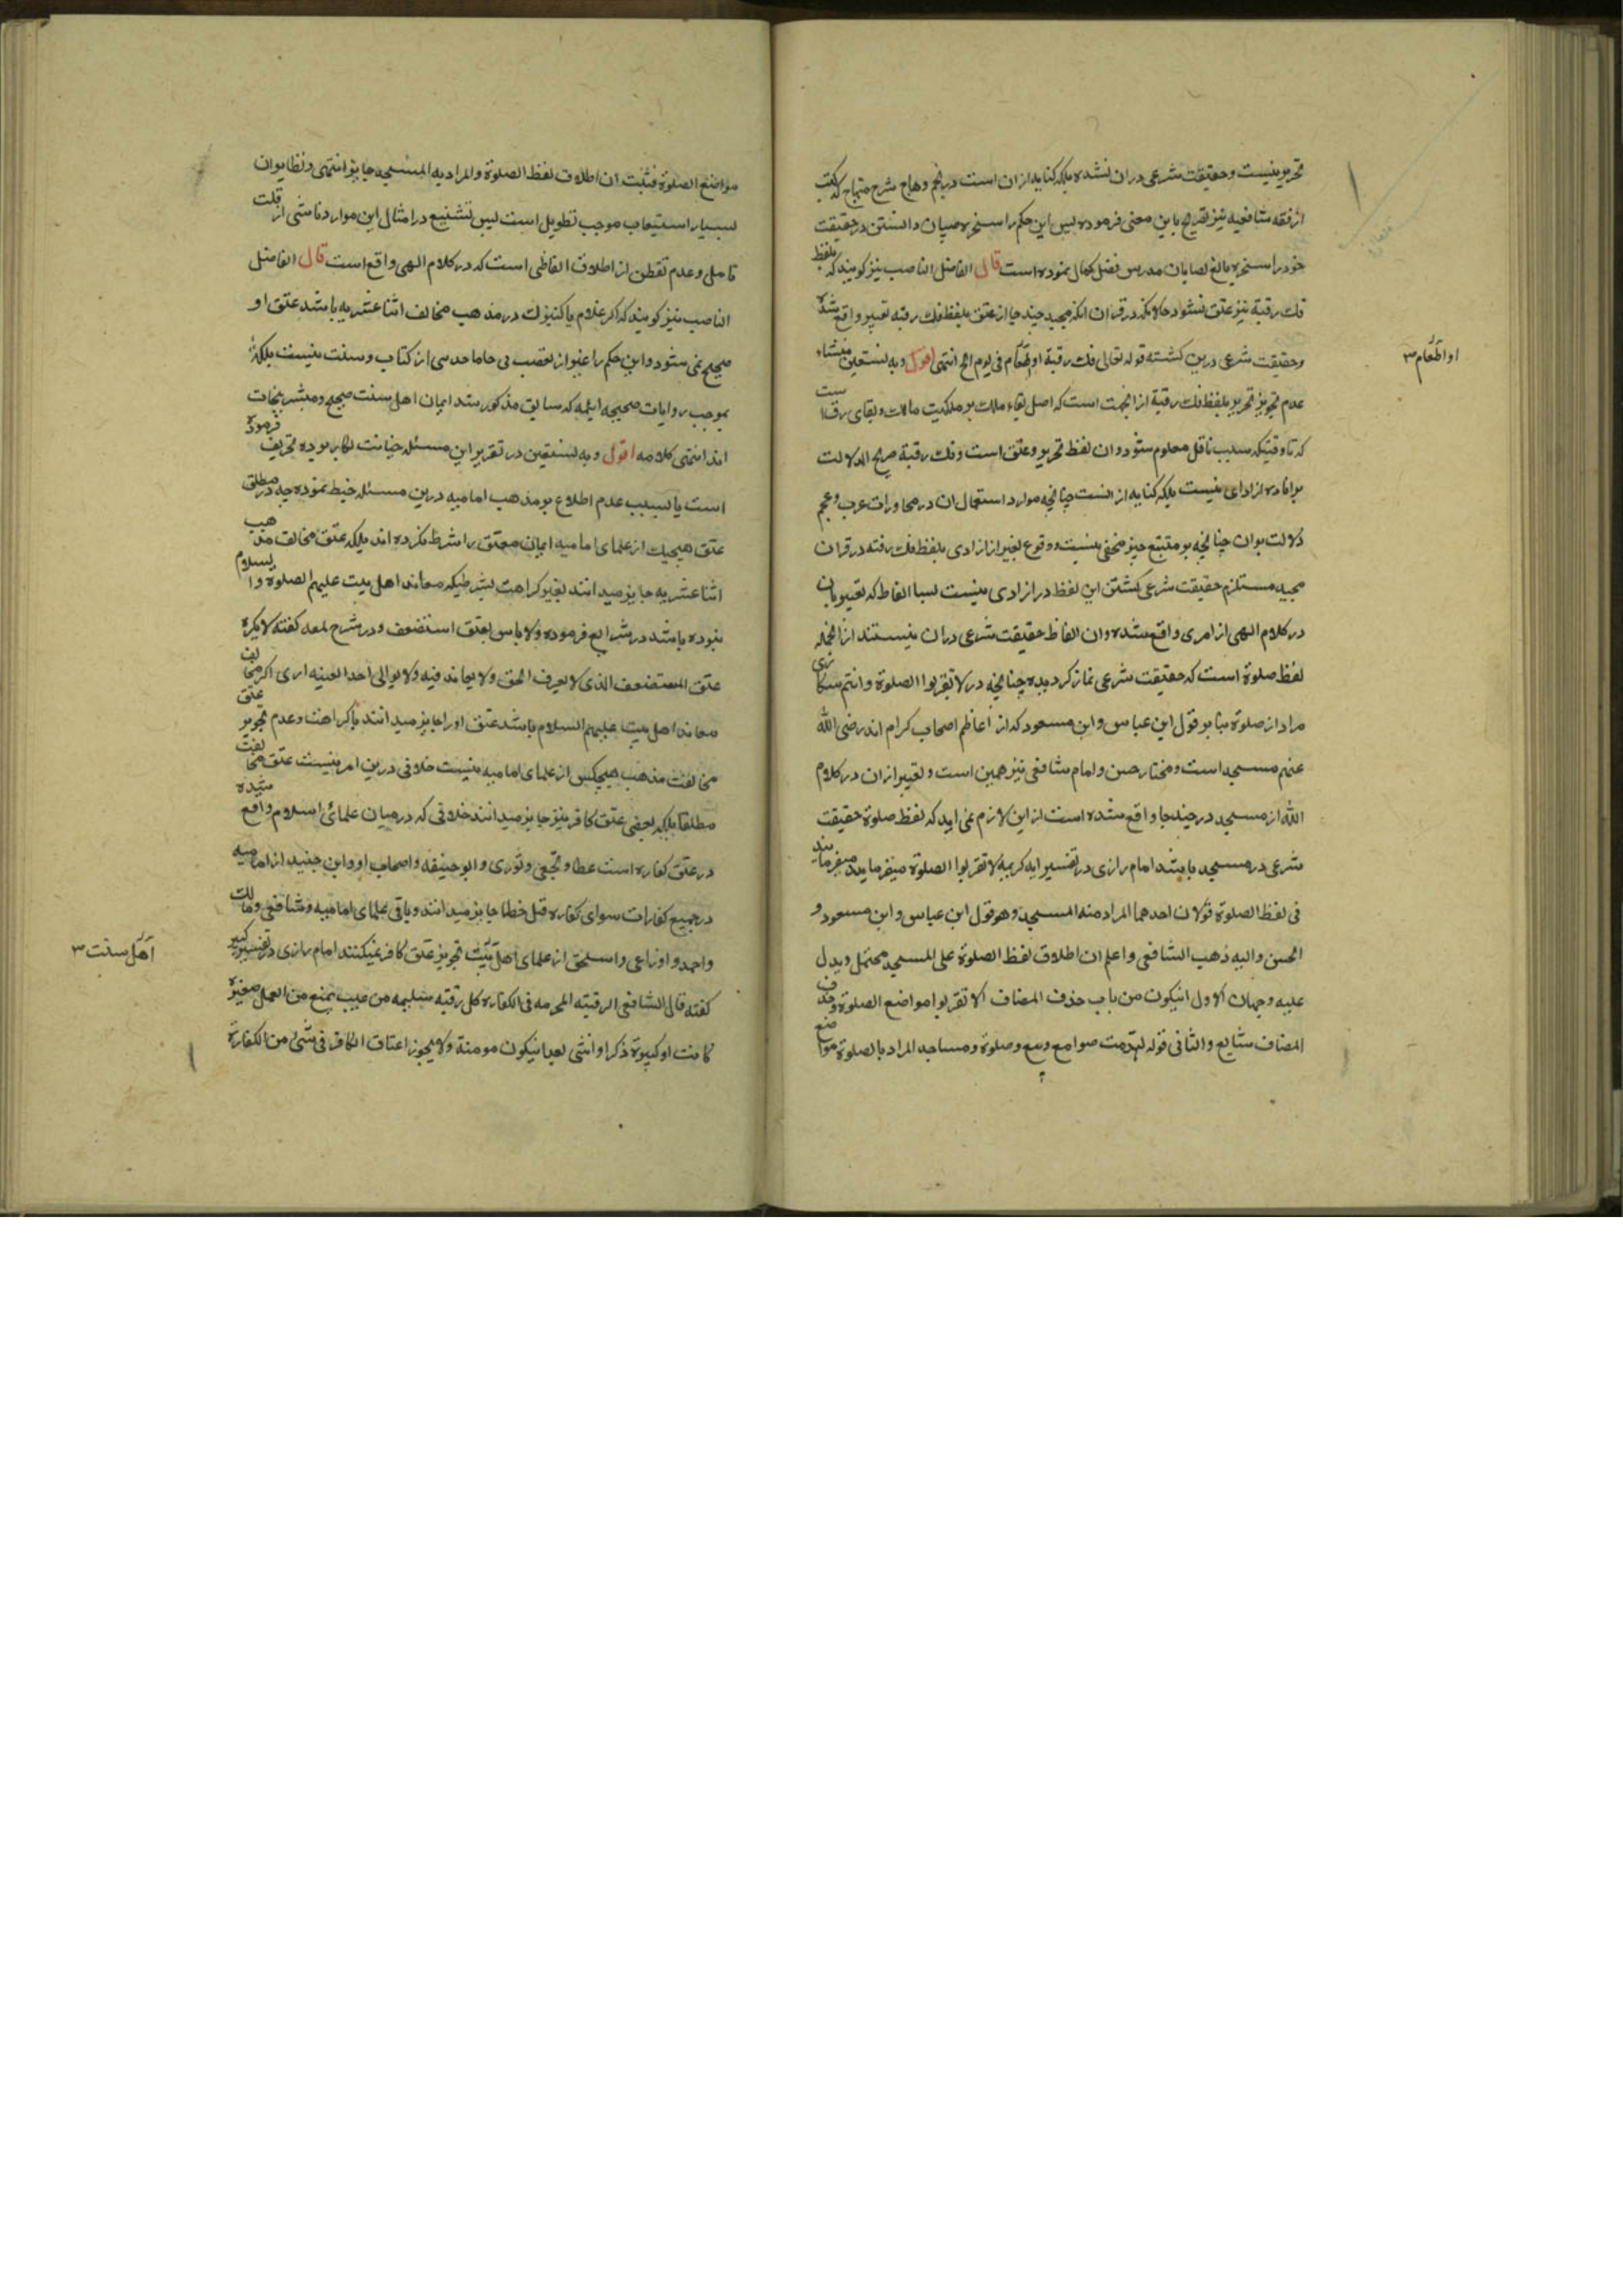 تحریر نیست و حقیقت شرعی دران نشده بلکه کنایه ازان است در نجم وهاج شرح منهاج که کتب
از فقه شافعیه نیز تصریح باین معنی فرموده پس این حکم را سخره صبیان دانستن در حقیقت
خود را سخره بالغ نصابان مدرس فضل کمال نموده است قال الفاضل الناصب نیز کویند که بلفظ
فك رقبة نیز عتق نشود حالانکه در قران مجید چند جا از عتق بلفظ فك رقبه تعبیر واقع شده
وحقیقت شرعی درین کشته قوله تعالی فك رقبة او اطعام فی یوم الخ انتهی اقول و به نستعین منشاء
عدم تجویز تحریر بلفظ فك رقبة ازانجهت است که اصل بقاء ملك بر ملکیت مالك و بقای رق است
که تا وقتیکه سبب ناقل معلوم شود وان لفظ تحریر وعتق است وفك رقبة صریح الدلالت
بر افاده ازادای نیست بلکه کنایه از انست چنانچه موارد استعمال ان در محاورات عرب وعجم
دلالت بران چنانچه بر متتبع خبیر مخفی نیست ووقوع تعبیر از ازادی بلفظ فك رقبه در قران
مجید مستلزم حقیقت شرعی کشتن این لفظ در ازادی نیست بسا الفاظ که تعبیر بان
در کلام الهی از امری واقع شده وان الفاظ حقیقت شرعی دران نیستند ازانجمله
لفظ صلوة است که حقیقت شرعی نماز کردیده چنانچه در لا تقربوا الصلوة وانتم سکاری
مراد از صلوة بنابر قول ابن عباس وابن مسعود که از اعاظم اصحاب کرام اند رضی الله
عنهم مسجد است ومختار حسن وامام شافعی نیز همین است وتعبیر ازان در کلام
الله از مسجد در چند جا واقع شده است از این لازم نمی اید که لفظ صلوة حقیقت
شرعی در مسجد باشد امام رازی در تفسیر ایه کریمه لا تقربوا الصلوة میفرماید میفرمایند
فی لفظ الصلوة قولان احدهما المراد منه المسجد وهو قول ابن عباس وابن مسعود و
الحسن والیه ذهب الشافعی واعلم ان اطلاق لفظ الصلوة علی المسجد محتمل ویدل
علیه وجهان الاول انیکون من باب حذف المضاف ای لا تقربوا مواضع الصلوة وحذف
المضاف شایع والثانی قوله لهدمت صوامع وبیع وصلوة ومساجد المراد بالصلوة مواضع
او اطعام ۳
مواضع الصلوة فثبت ان اطلاق لفظ الصلوة والمراد به المسجد جایز انتهی ونظایر ان
بسیار استیعاب موجب تطویل است پس تشنیع در امثال این موارد ناشی از قلت
تامل وعدم تفطن از اطلاق الفاظی است که در کلام الهی واقع است قال الفاضل
الناصب نیز کویند که اکر غلام یا کنیزك در مذهب مخالف اثنا عشریه باشد عتق او
صحیح نمی شود واین حکم را غیر از تعصب بی جا ماخذی از کتاب وسنت نیست بلکه
بموجب روایات صحیحه ایمه که سابق مذکور شد ایمان اهل سنت صحیح ومبشر بنجات
اند انتهی کلامه اقول و به نستعین در تقریر این مسئله خیانت بکار برده تحریف فرموده
است یا بسبب عدم اطلاع بر مذهب امامیه درین مسئله خبط نموده چه در مطلق
عتق هیچیك از علمای امامیه ایمان معتق را شرط نکرده اند بلکه عتق مخالف مذهب
اثنا عشریه جایز میدانند بغیر کراهت بشرطیکه معاند اهل بیت علیهم الصلوة والسلام
نبوده باشد در شرایع فرموده ولا باس بعتق المستضعف ودر شرح لمعه کفته لا یکره
عتق المستضعف الذی لا یعرف الحق ولا یعاند فیه ولا یوالی احدا بعینه اری اکر مخالف
معاند اهل بیت علیهم السلام باشد عتق او را جایز میدانند باکراهت وعدم تجویز عتق
مخالفت مذهب هیچکس از علمای امامیه نیست خلافی درین امر نیست عتق مخالفت
مطلقا بلکه بعضی عتق کافر نیز جایز میدانند خلافی که درمیان علمای اسلام واقع شده
در عتق کفاره است عطا ونخعی وثوری وابو حنیفه واصحاب او وابن جنید از امامیه
در جمیع کفارات سوای کفاره قتل خطا جایز میدانند وباقی علمای امامیه وشافعی ومالك
واحمد واوزاعی واسحق از علمای اهل بیت تجویز عتق کافر نمیکنند امام رازی در تفسیر کبیر
کفته قال الشافعی الرقبته المجرمه فی الکفاره کل رقبته سلیمه من عیب یمنع من العمل صغیرة
کانت او کبیرة ذکرا او انثی بعد انیکون مومنة ولا یجوز اعتاق الکافر فی شئ من الکفارة
اهل سنت ۳